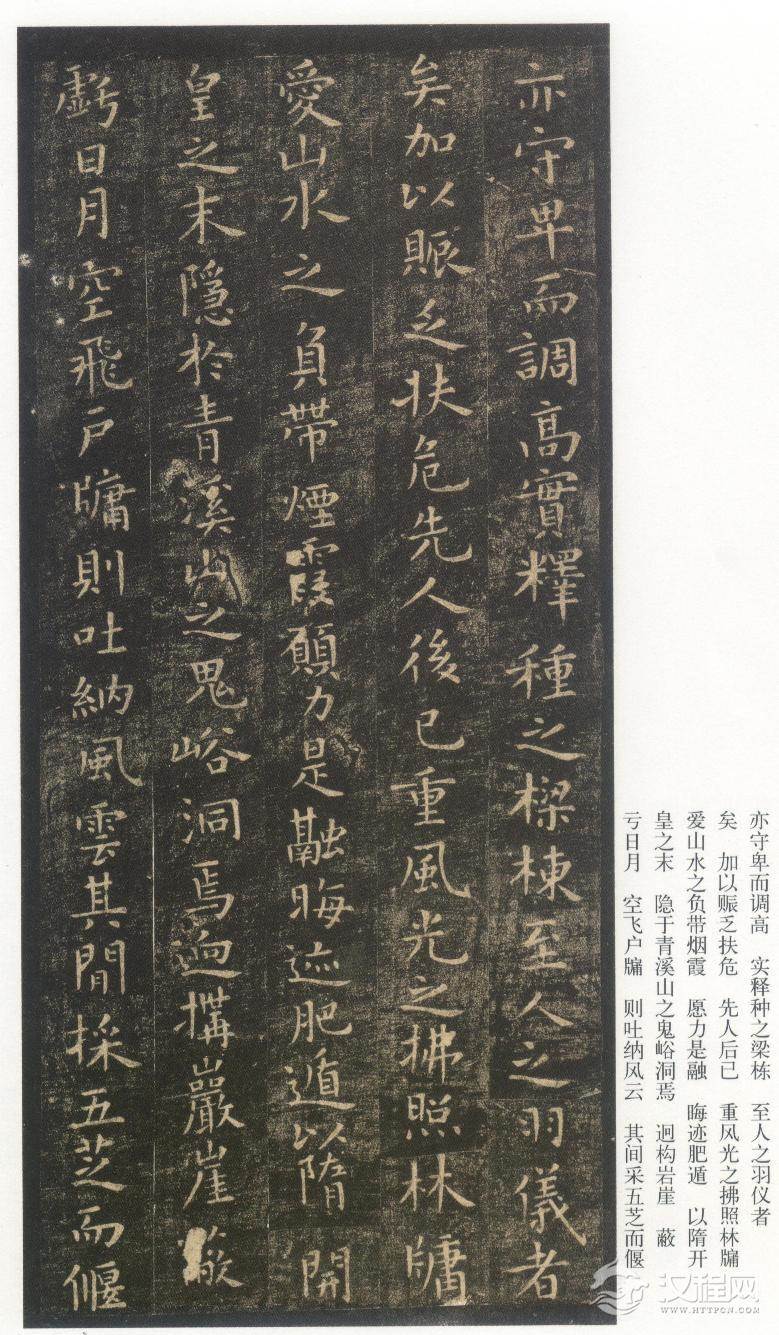 亦守卑而調高實釋種之樑棟至人之羽儀者
矣加以賑乏扶危先人後已重風光之拂照林牖
愛山水之負帶煙霞願力是融晦迹肥遁以隋開
皇之末隱於青溪山之鬼峪洞焉迥構巖崖蔽
虧日月空飛戶牖則吐納風雲其間採五芝而偃
亦守卑而调高　实释种之梁栋　至人之羽仪者
矣　加以赈乏扶危　先人后已　重风光之拂照林牖
爱山水之负带烟霞　愿力是融　晦迹肥遁　以隋开
皇之末　隐于青溪山之鬼峪洞焉　迥构岩崖　蔽
亏日月　空飞户牖　则吐纳风云　其间采五芝而偃
汉程网
WWW.HTTPCN.COM